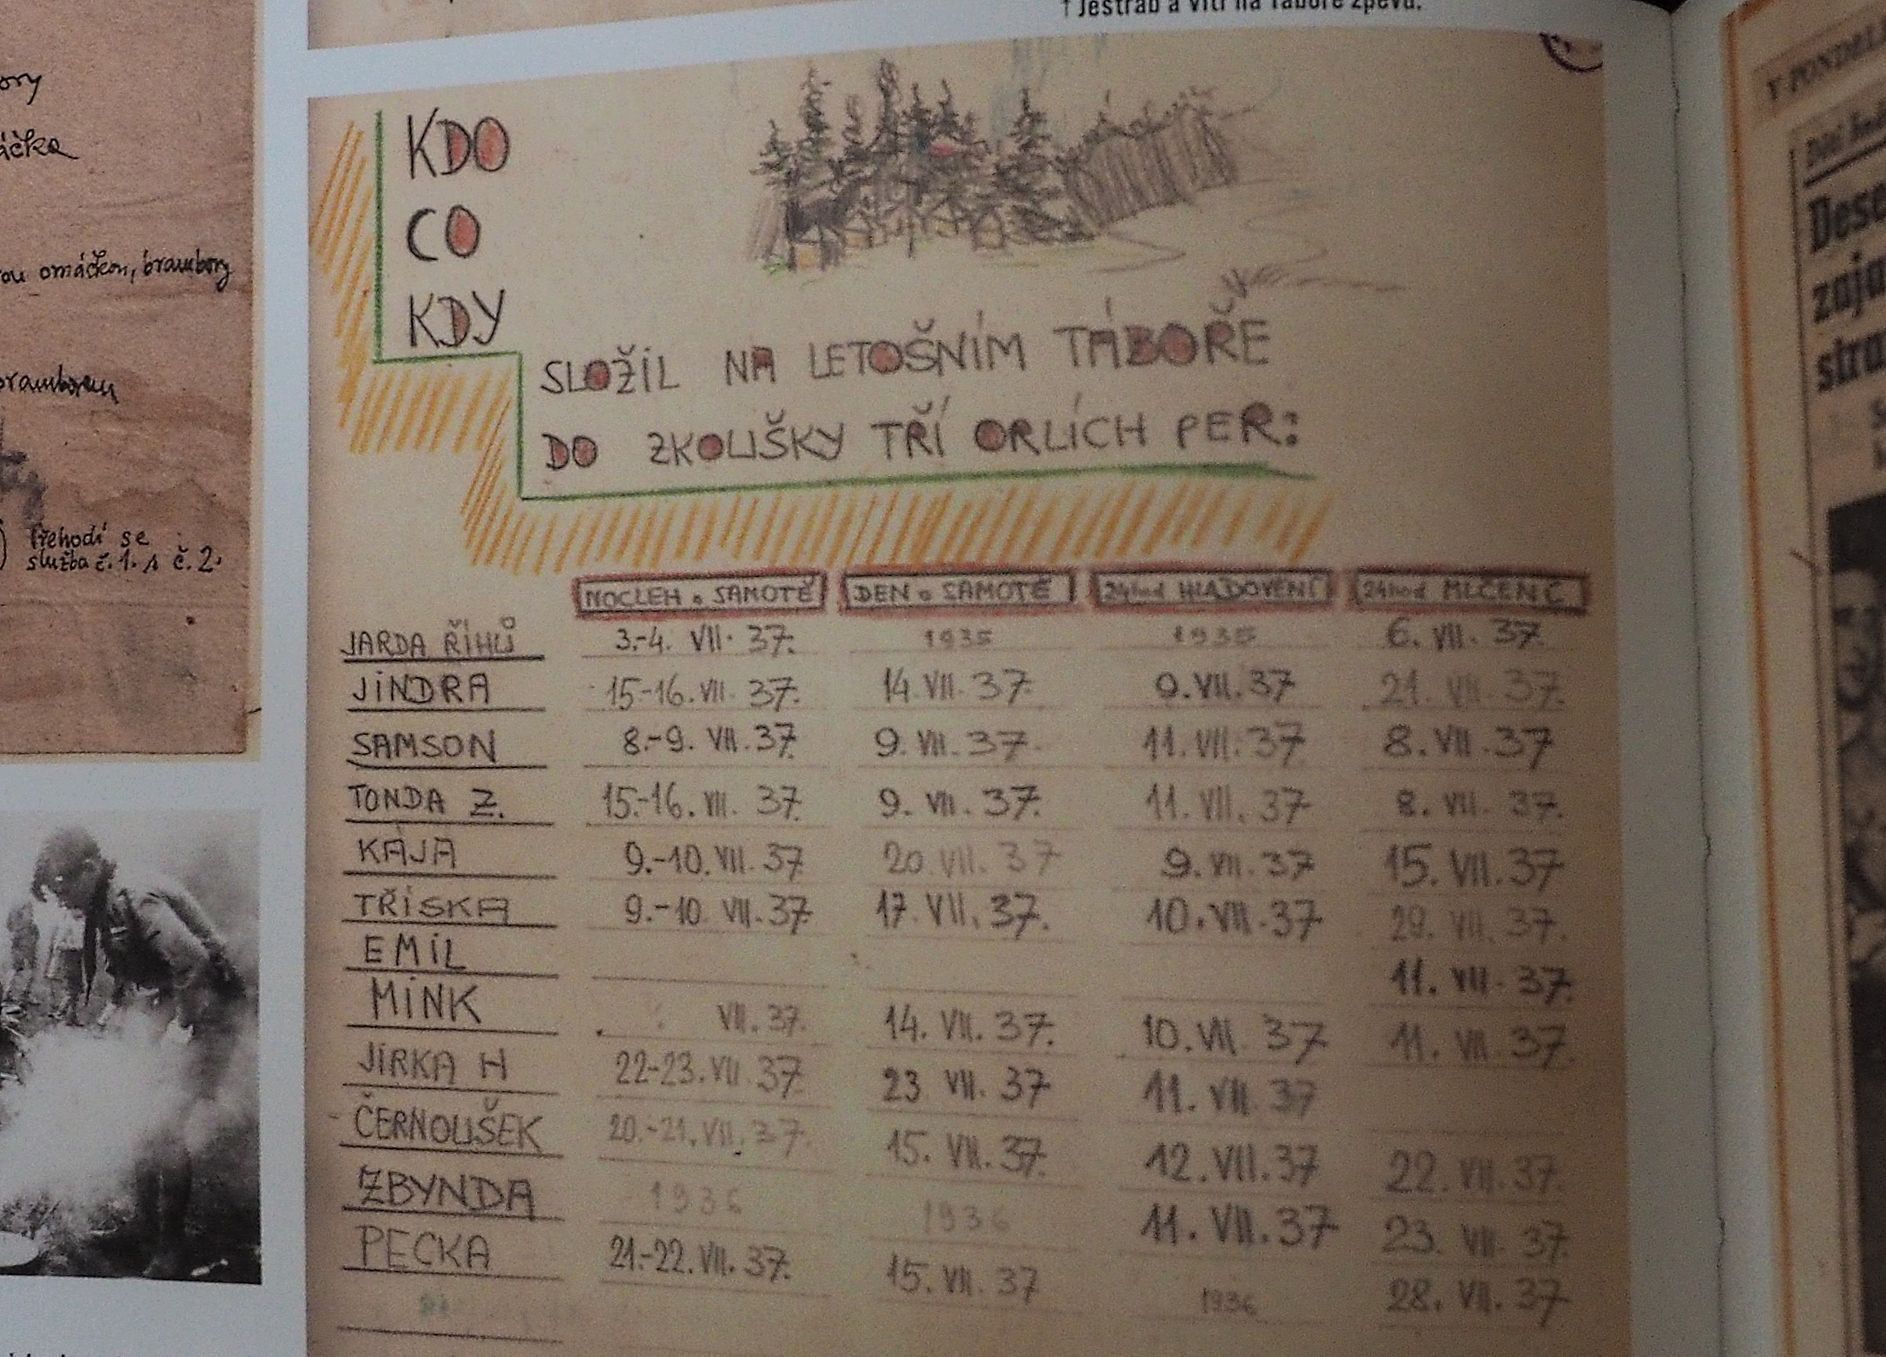 ↑ Jestřáb a Vítr na Táboře zpěvu.
ory
áčka
ou omáčkou, brambory
bramborem
Přehodí se
služba č. 1. s č. 2.
KDO
CO
KDY
SLOŽIL NA LETOŠNÍM TÁBOŘE
DO ZKOUŠKY TŘÍ ORLÍCH PER:
NOCLEH o SAMOTĚ DEN o SAMOTĚ 24hod HLADOVĚNÍ 24hod MLČENÍ
JARDA ŘÍHŮ 3.-4. VII. 37. 1935 1935 6. VII. 37
JINDRA 15-16. VII. 37. 14. VII. 37 9. VII. 37 21. VII 37.
SAMSON 8.-9. VII. 37. 9. VII. 37. 11. VII. 37 8. VII. 37
TONDA Z. 15.-16. VII. 37. 9. VII. 37. 11. VII. 37 8. VII. 37.
KÁJA 9.-10. VII. 37 20. VII. 37 9. VII. 37 15. VII. 37
TŘÍSKA 9.-10. VII. 37 17. VII. 37. 10. VII. 37 29. VII. 37.
EMIL 11. VII. 37.
MINK VII. 37. 14. VII. 37. 10. VII. 37 11. VII. 37.
JIRKA H 22-23. VII. 37. 23 VII. 37 11. VII. 37
ČERNOUŠEK 20.-21. VII. 37. 15. VII. 37. 12. VII. 37 22. VII. 37.
ZBYNDA 1936 1936 11. VII. 37 23. VII. 37.
PECKA 21.-22. VII. 37. 15. VII. 37 1936 28. VII. 37
V PONDĚLÍ
Dese
zaja
stra